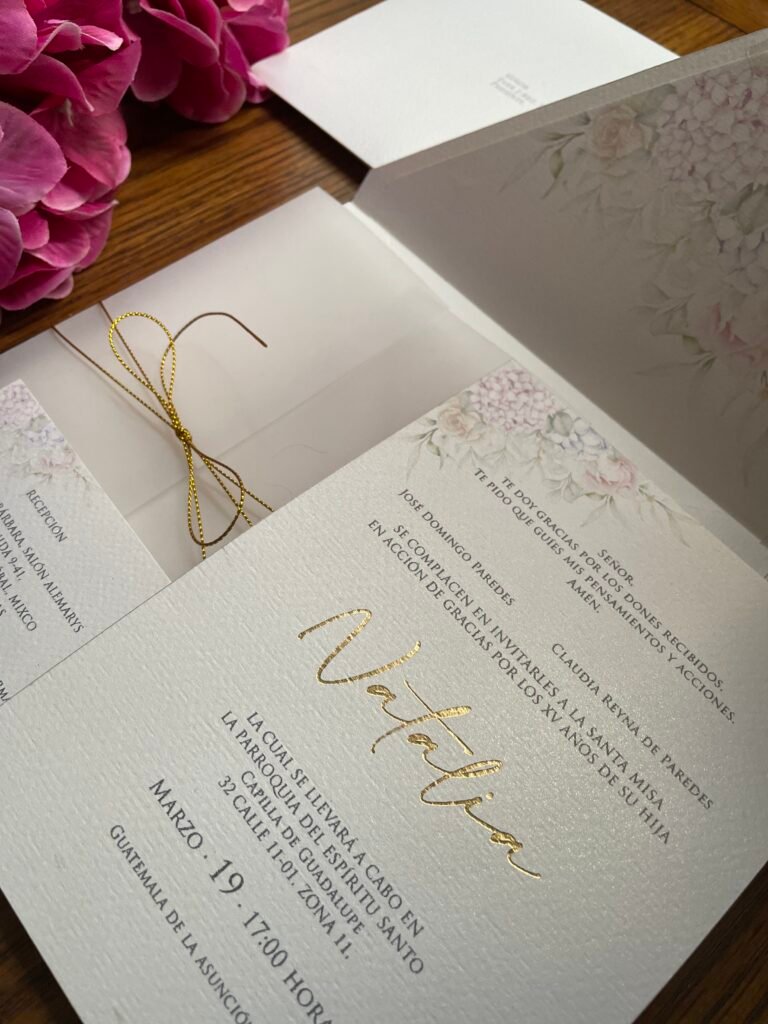 SEÑOR,
TE DOY GRACIAS POR LOS DONES RECIBIDOS.
TE PIDO QUE GUÍES MIS PENSAMIENTOS Y ACCIONES.
AMÉN.
JOSE DOMINGO PAREDES
CLAUDIA REYNA DE PAREDES
SE COMPLACEN EN INVITARLES A LA SANTA MISA
EN ACCIÓN DE GRACIAS POR LOS XV AÑOS DE SU HIJA
Natalia
LA CUAL SE LLEVARÁ A CABO EN
LA PARROQUIA DEL ESPIRITU SANTO
CAPILLA DE GUADALUPE
32 CALLE 11-01, ZONA 11.
MARZO · 19 · 17:00 HORA
GUATEMALA DE LA ASUNCIÓ
RECEPCIÓN
SALÓN ALEMARYS
9-41,
MIXCO